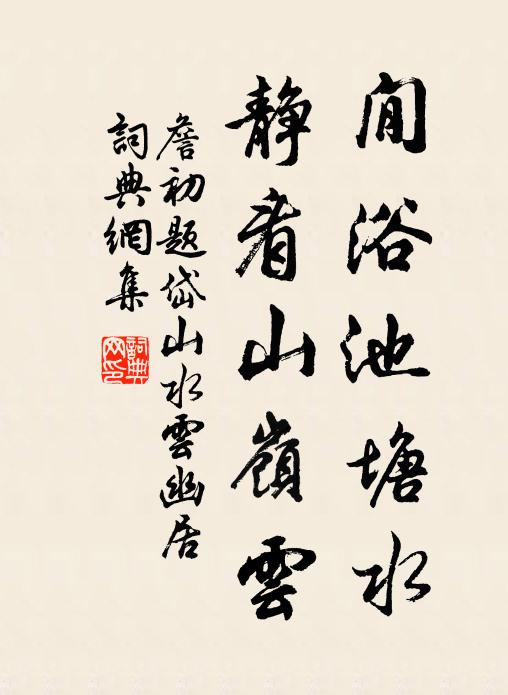 閒浴池塘水
靜看山嶺雲
詹初題岱山水雲幽居
詞典網集
詞典
网印